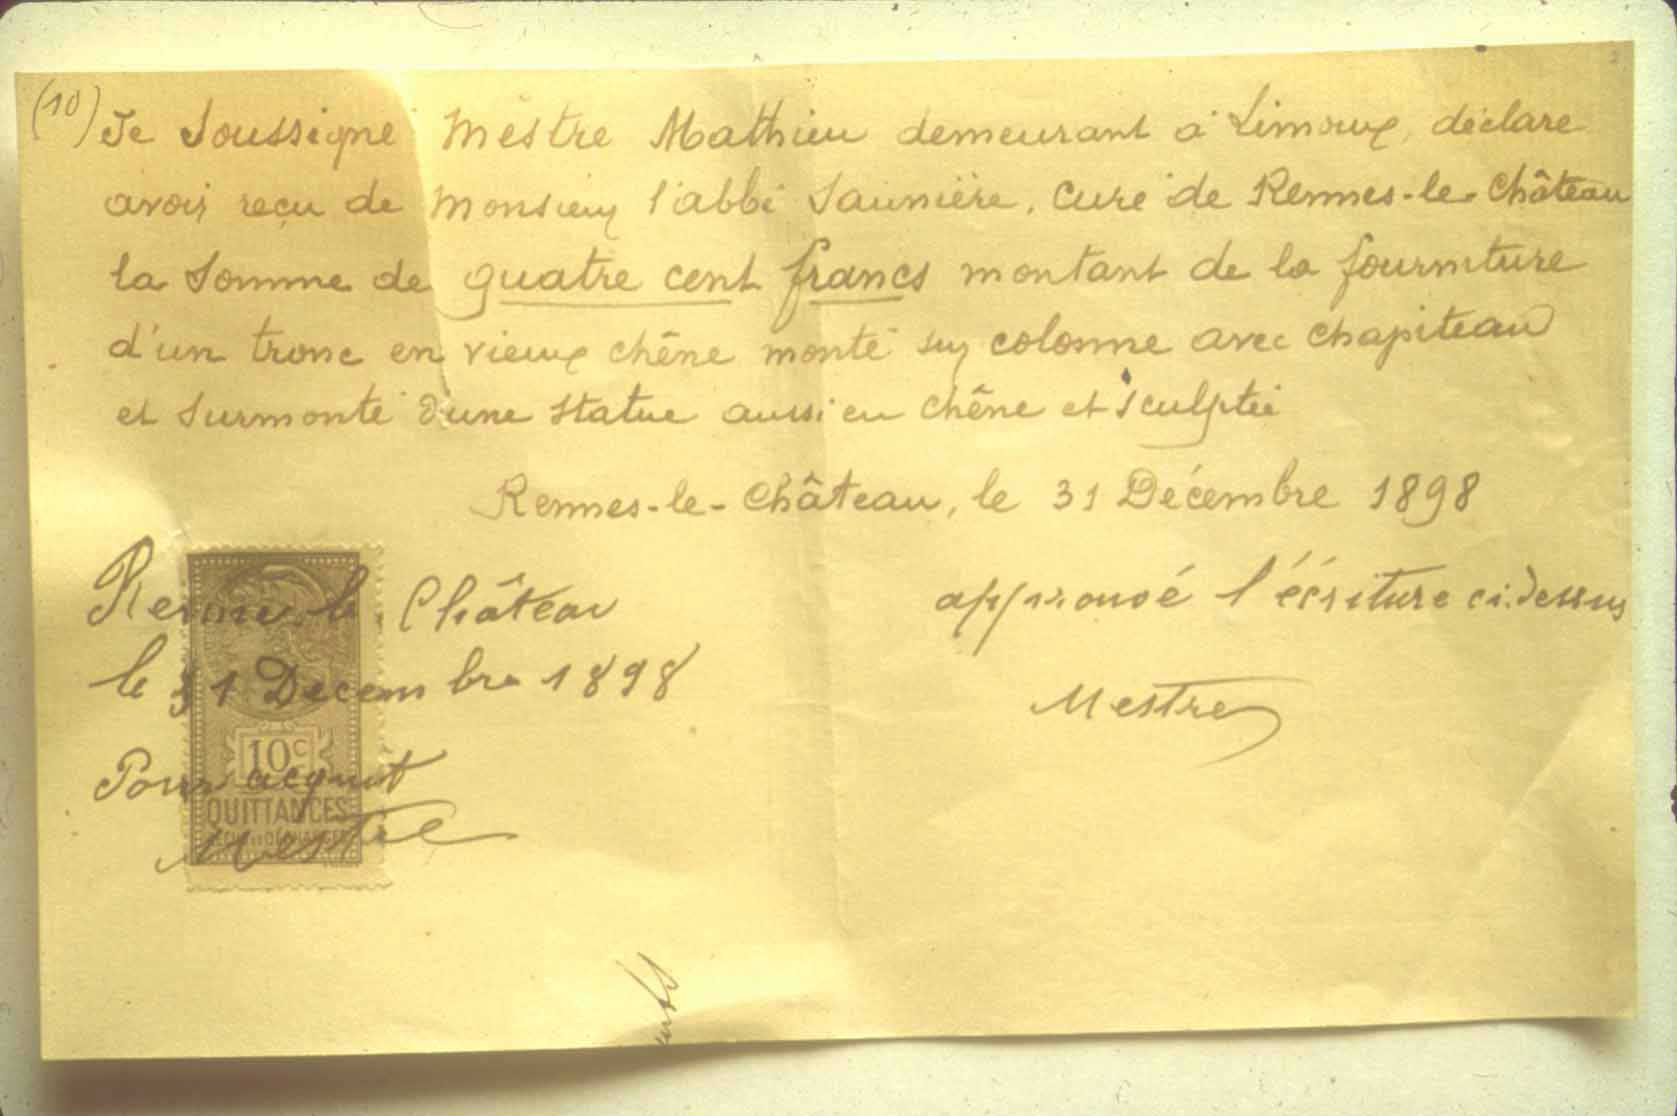 (10) Je Soussigné Mestre Mathieu demeurant à Limoux, déclare
avoir reçu de Monsieur l'abbé Saunière, Curé de Rennes-le-Château
la Somme de quatre cent francs montant de la fourniture
d'un tronc en vieux chêne monté sur colonne avec chapiteau
et surmonté d'une statue aussi en chêne et sculptée
Rennes-le-Château, le 31 Décembre 1898
Rennes-le-Château
le 31 Décembre 1898
Pour acquit
Mestre
10c
QUITTANCES
approuvé l'écriture ci-dessus
Mestre